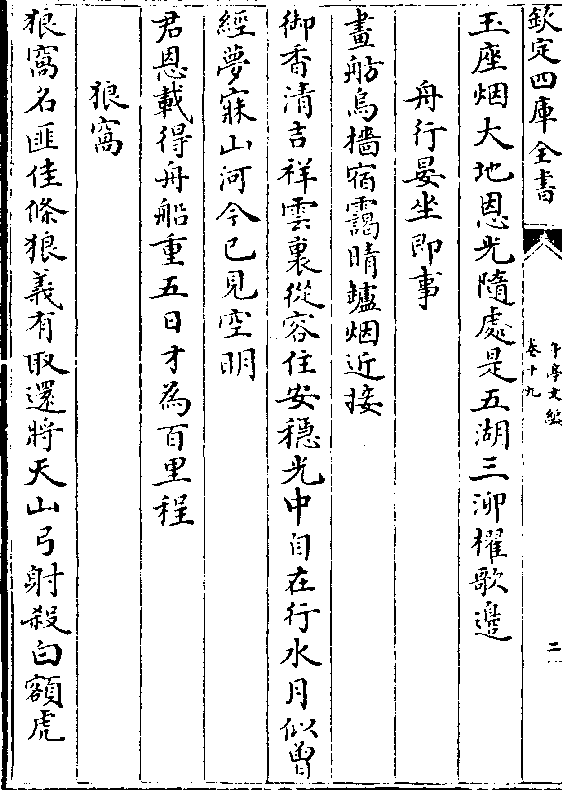 欽定四庫全書
午亭文編
卷十九
二
玉座烟大地恩光隨處是五湖三泖櫂歌邊
舟行晏坐即事
畫舫烏檣宿靄晴爐烟近接
御香清吉祥雲裏從容住安穩光中自在行水月似曾
經夢寐山河今已見空明
君恩載得舟船重五日才為百里程
狼窩
狼窩名匪佳條狼義有取還將天山弓射殺白額虎